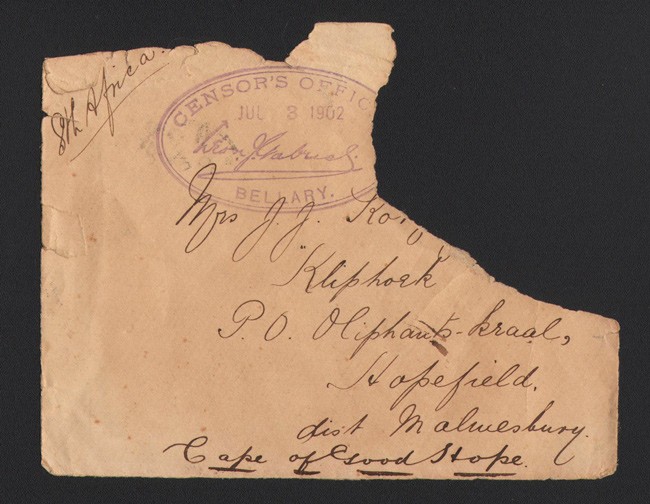 Sth Africa.
CENSOR'S OFFIC
JUL 3 1902
BELLARY.
Mrs J. J. Ko
"Kliphoek
P.O. Oliphants-kraal,
Hopefield.
dist Malmesbury.
Cape of Good Hope.